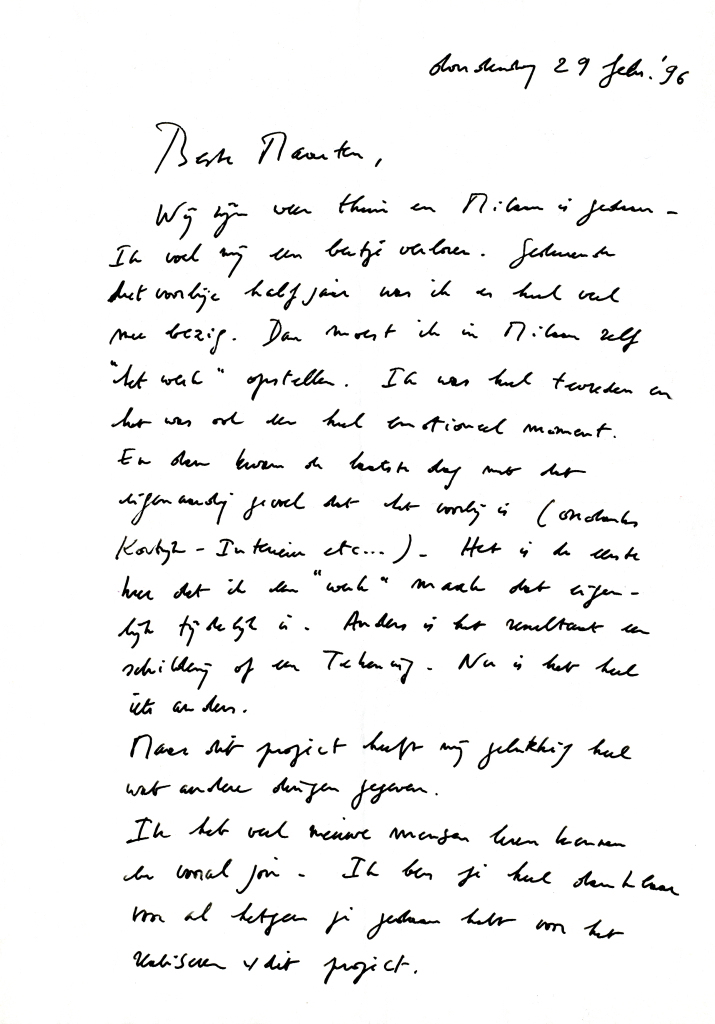 donderdag 29 febr. '96
Beste Maarten,
Wij zijn weer thuis en Milaan is gedaan -
Ik voel mij een beetje verloren. Gedurende
het voorbije half jaar was ik er heel veel
mee bezig. Dan moest ik in Milaan zelf
"het werk" opstellen. Ik was heel tevreden en
het was ook een heel emotioneel moment.
En dan kwam de laatste dag met dat
eigenaardig gevoel dat het voorbij is (ondanks
Kortrijk - Interieur etc...) - Het is de eerste
keer dat ik een "werk" maak dat eigen-
lijk tijdelijk is. Anders is het resultaat een
schilderij of een Tekening. Nu is het heel
iets anders.
Maar dit project heeft mij gelukkig heel
wat andere dingen gegeven.
Ik heb veel nieuwe mensen leren kennen
en vooral jou - Ik ben je heel dankbaar
voor al hetgeen je gedaan hebt voor het
realiseren v/dit project.